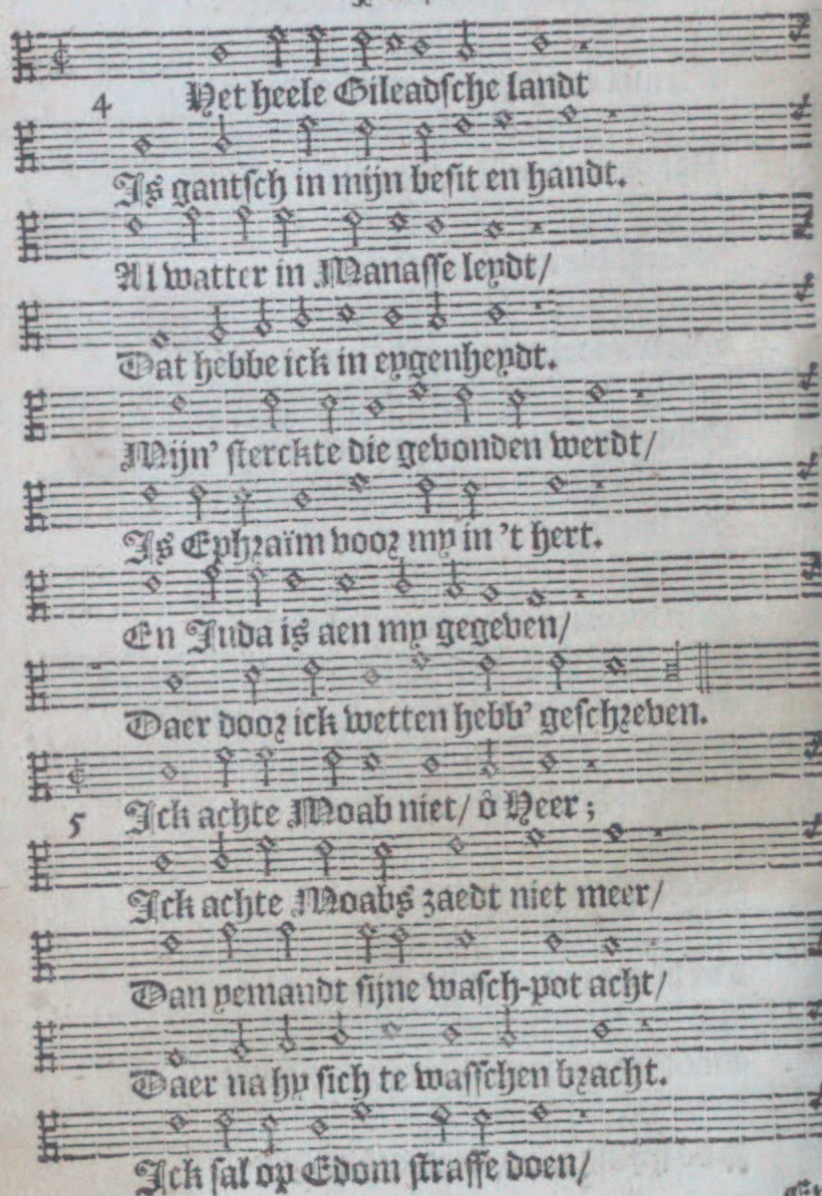 4 Het heele Gileadsche landt
Is gantsch in mijn besit en handt.
Al watter in Manasse leydt/
Dat hebbe ick in eygenheydt.
Mijn' sterckte die gevonden werdt/
Is Ephraïm voor my in 't hert.
En Juda is aen my gegeven/
Daer door ick wetten hebb' geschreven.
5 Ick achte Moab niet/ ô Heer;
Ick achte Moabs zaedt niet meer/
Dan yemandt sijne wasch-pot acht/
Daer na hy sich te wasschen bracht.
Ick sal op Edom straffe doen/